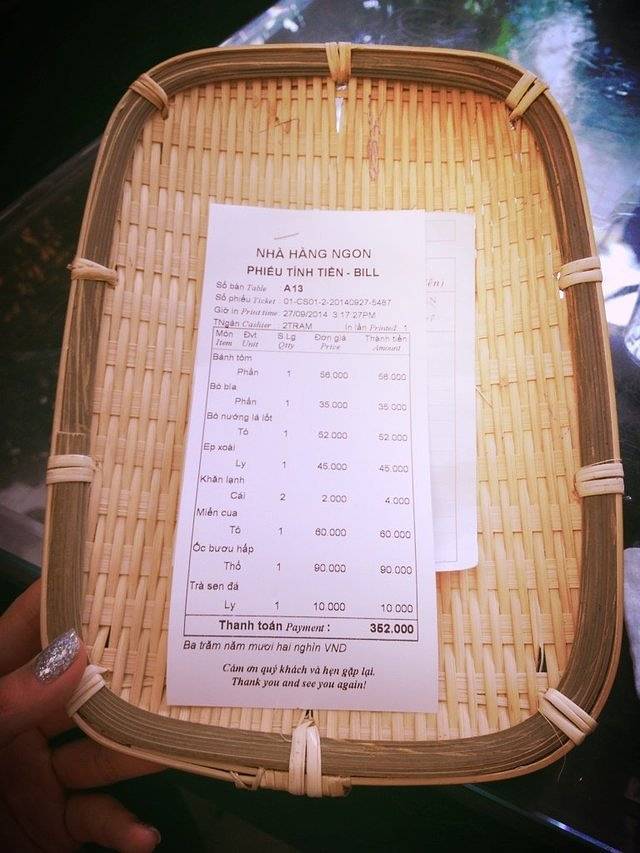 NHÀ HÀNG NGON
PHIẾU TÍNH TIỀN - BILL
Số bàn Table A13
Số phiếu Ticket 01-CS01-2-20140927-5487
Giờ in Print time 27/09/2014 3:17:27PM
TNgân Cashier 2TRAM In lần Printed: 1
Món Đvt S.Lg Đơn giá Thành tiền
Item Unit Qtty Price Amount
Bánh tôm
Phần 1 56.000 56.000
Bò bía
Phần 1 35.000 35.000
Bò nướng lá lốt
Tô 1 52.000 52.000
Ep xoài
Ly 1 45.000 45.000
Khăn lạnh
Cái 2 2.000 4.000
Miến cua
Tô 1 60.000 60.000
Ốc bươu hấp
Thố 1 90.000 90.000
Trà sen đá
Ly 1 10.000 10.000
Thanh toán Payment : 352.000
Ba trăm năm mươi hai nghìn VND
Cám ơn quý khách và hẹn gặp lại.
Thank you and see you again!